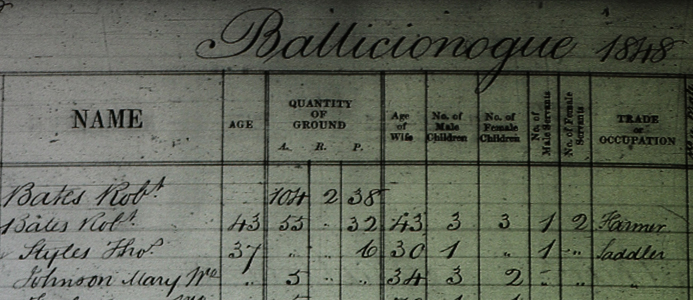 Ballicionogue 1848
NAME AGE QUANTITY OF GROUND A. R. P. Age of Wife No. of Male Children No. of Female Children No. of Male Servants No. of Female Servants TRADE or OCCUPATION
Bates Robt 104 2 38
Bates Robt 43 55 " 32 43 3 3 1 2 Farmer
Styles Thos 37 " " 6 30 1 " 1 " Saddler
Johnson Mary Wo 5 " " 34 3 2 " " "